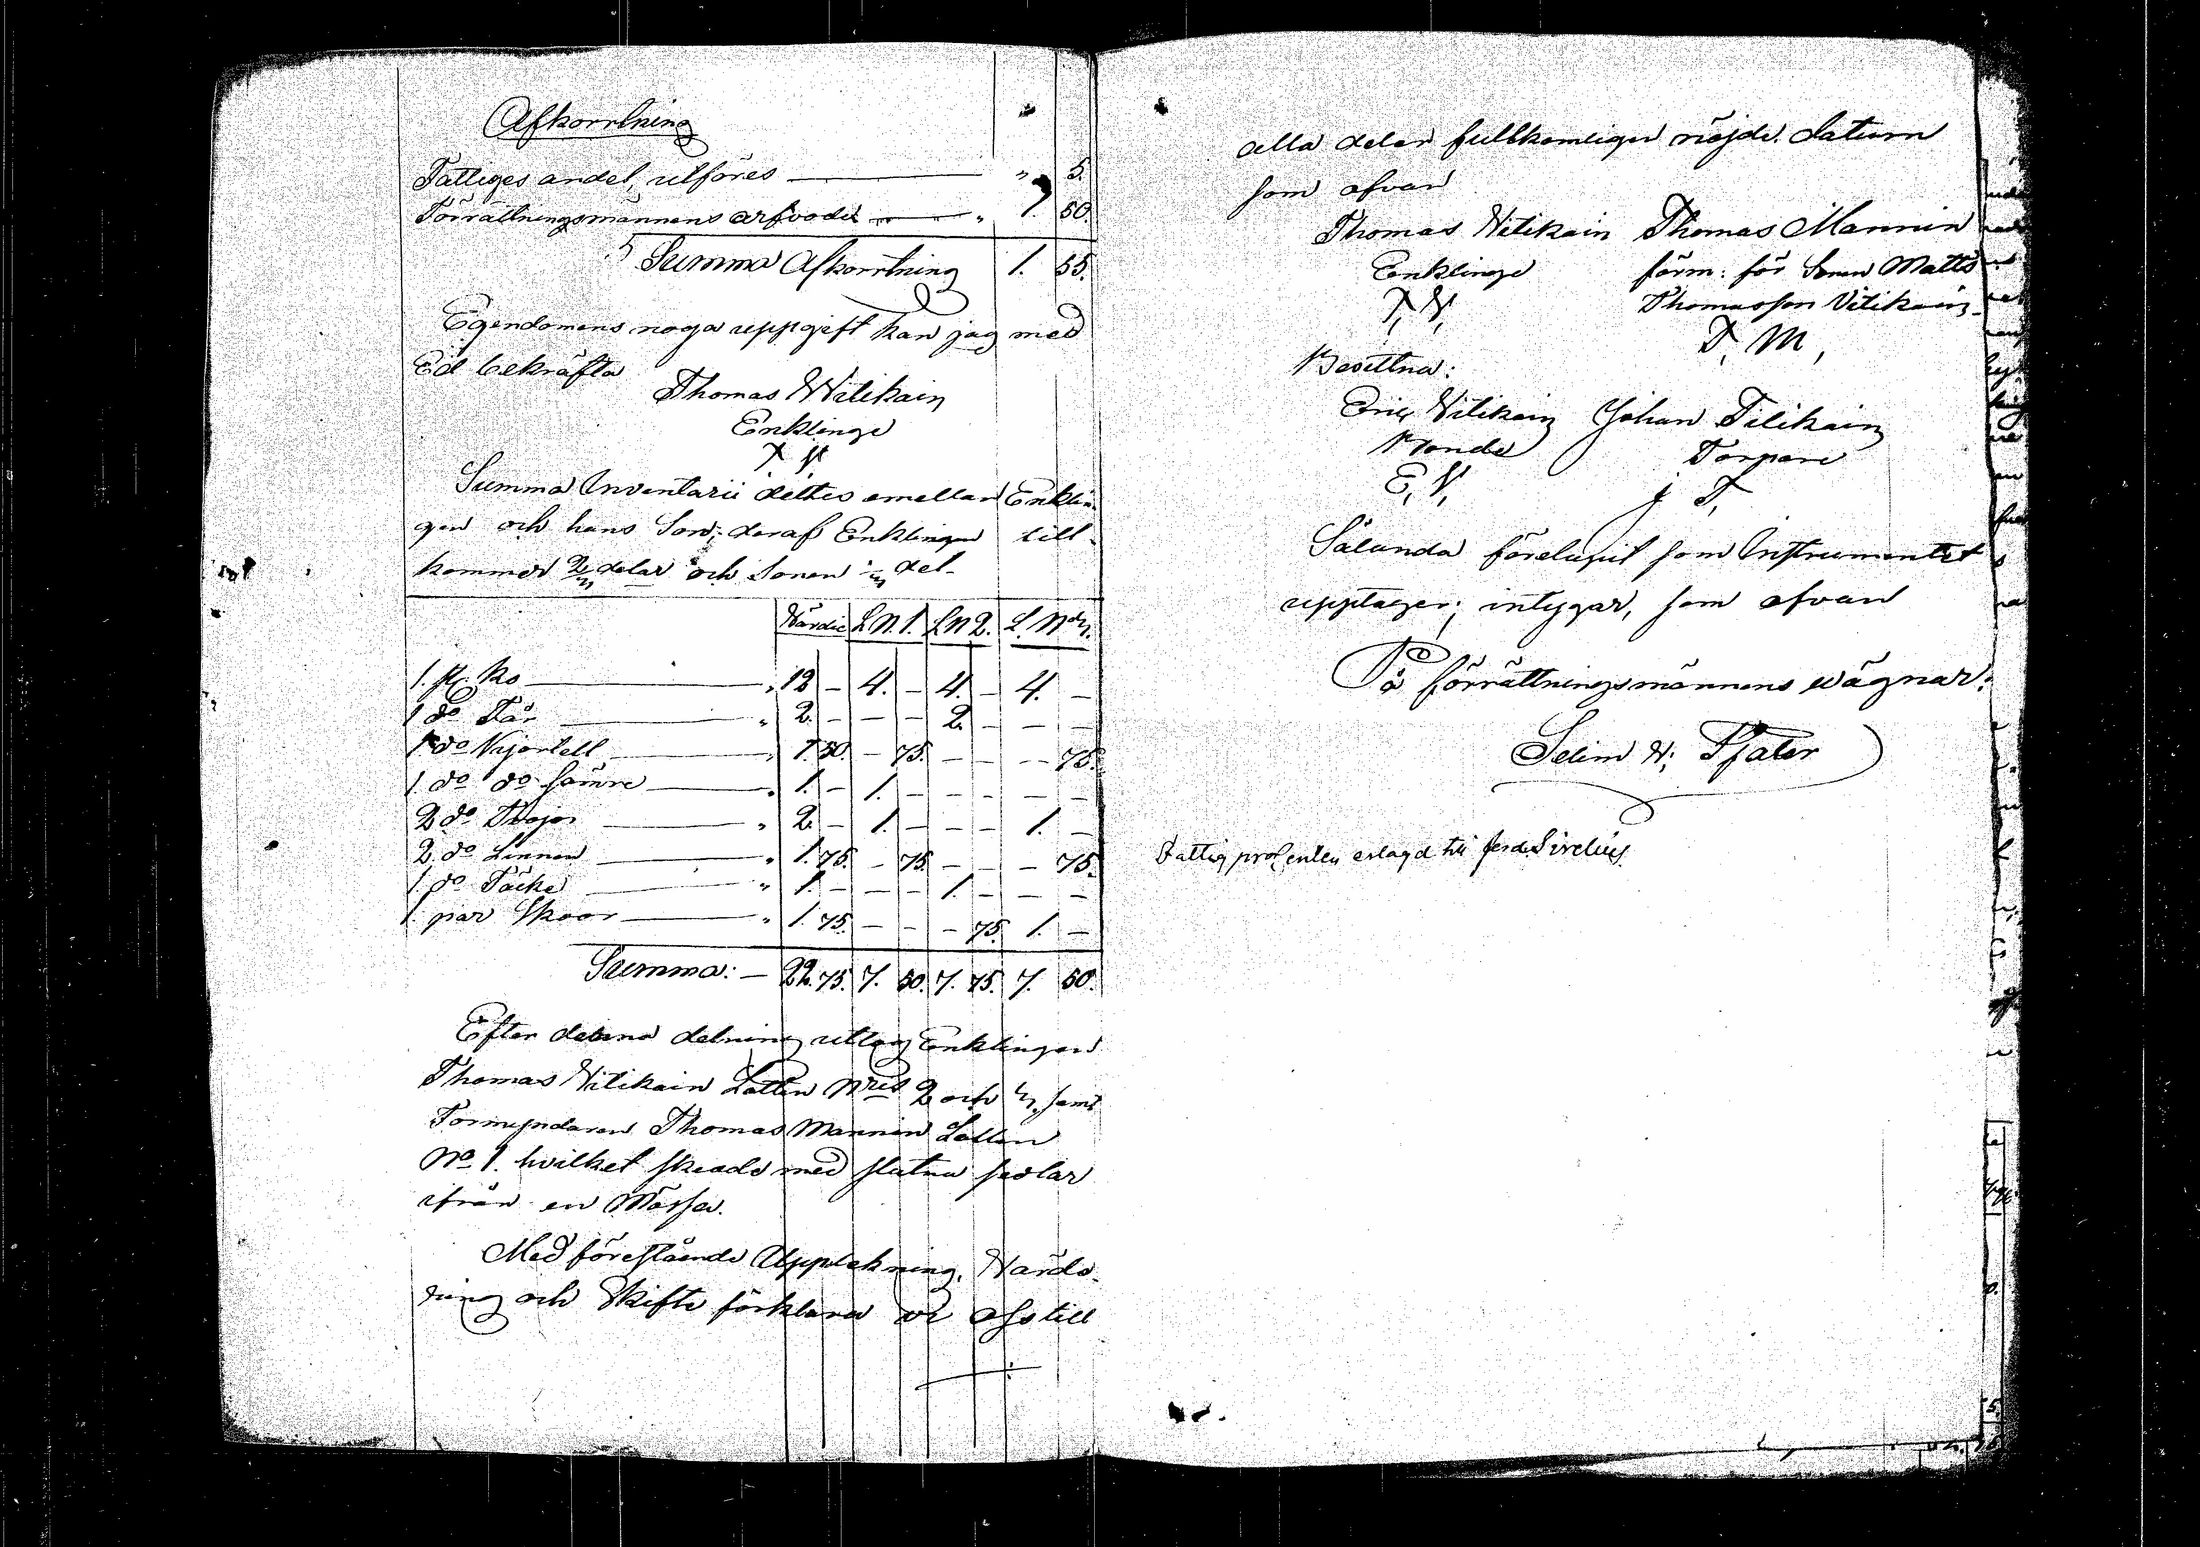 Afkorrtning
Fattiges andel, utföres — " 5.
Förrättningsmännens arfvode — " 1. 50.
Summa Afkorrtning 1. 55.
Egendomens noga uppgift kan jag med
Ed bekräfta
Thomas Witikain
Enklinge
T. W.
Summa Inventarii deltes emellan Enklin-
gen och hans Son; deraf Enklingen till-
kommer 2/3 delar och Sonen 1/3 del-
Värdie L N. 1. L N 2. L. N. 3.
1. st. Ko — " 12 – 4. – 4. – 4. –
1 do Får — " 2. – – – 2. – – –
1 do Kjortell — " 1. 50. – 75. – – – 75.
1. do do sämre — " 1. – 1. – – – – –
2 do Tröjor — " 2. – 1. – – – 1. –
2. do Linnen — " 1. 75. – 75. – – – 75.
1. do Täcke — " 1. – – – 1. – – –
1. par Skoor — " 1. 75. – – – 75. 1. –
Summa: — 22. 75. 7. 50. 7. 75. 7. 50.
Efter denna delning uttog Enklingen
Thomas Witikain Lotten Nris 2 och 3. samt
Förmyndaren Thomas Mannin Lotten
No 1. hvilket skeade med slutna sedlar
ifrån en Mössa.
Med förestående Uppteckning, Värde-
ring och Skifte förklara vi oss till
alla delar fullkomligen nöjde. Datum
som ofvan
Thomas Witikain Thomas Mannin
Enklinge förm: för Sonen Matts
Thomasson Vitikain
T. V. T. M.
Bevittna:
Eric Vitikain Johan Tilikain
Bonde Torpare
E. V. J. T.
Sålunda förelupit som Instrumentet
upptager; intygar, som ofvan
På förrättningsmännens vägnar:
Selim W;
Fattig procenten erlagd till ferd. Sirelius